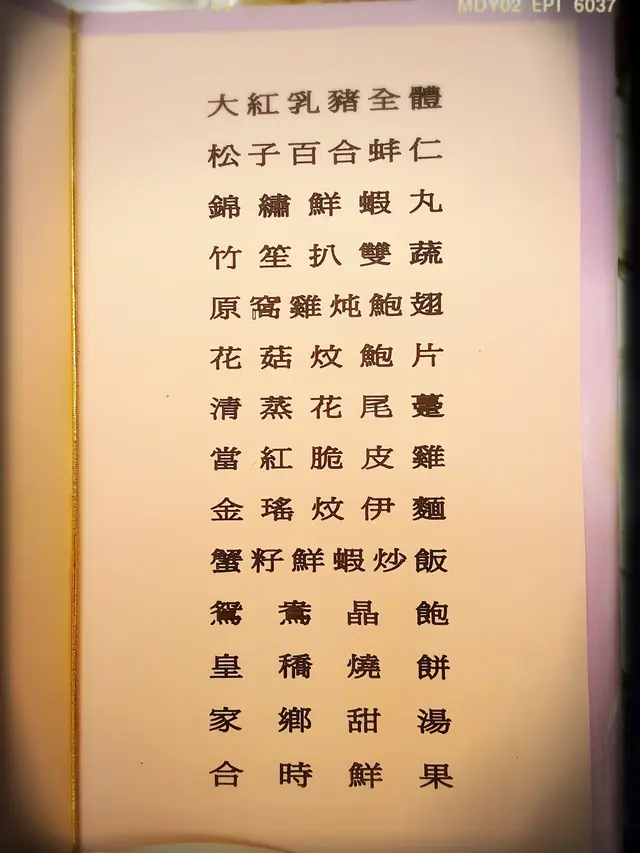 MDY02 EPI 6037
大紅乳豬全體
松子百合蚌仁
錦繡鮮蝦丸
竹笙扒雙蔬
原窩雞炖鮑翅
花菇炆鮑片
清蒸花尾躉
當紅脆皮雞
金瑤炆伊麵
蟹籽鮮蝦炒飯
鴛鴦晶飽
皇穚燒餅
家鄉甜湯
合時鮮果